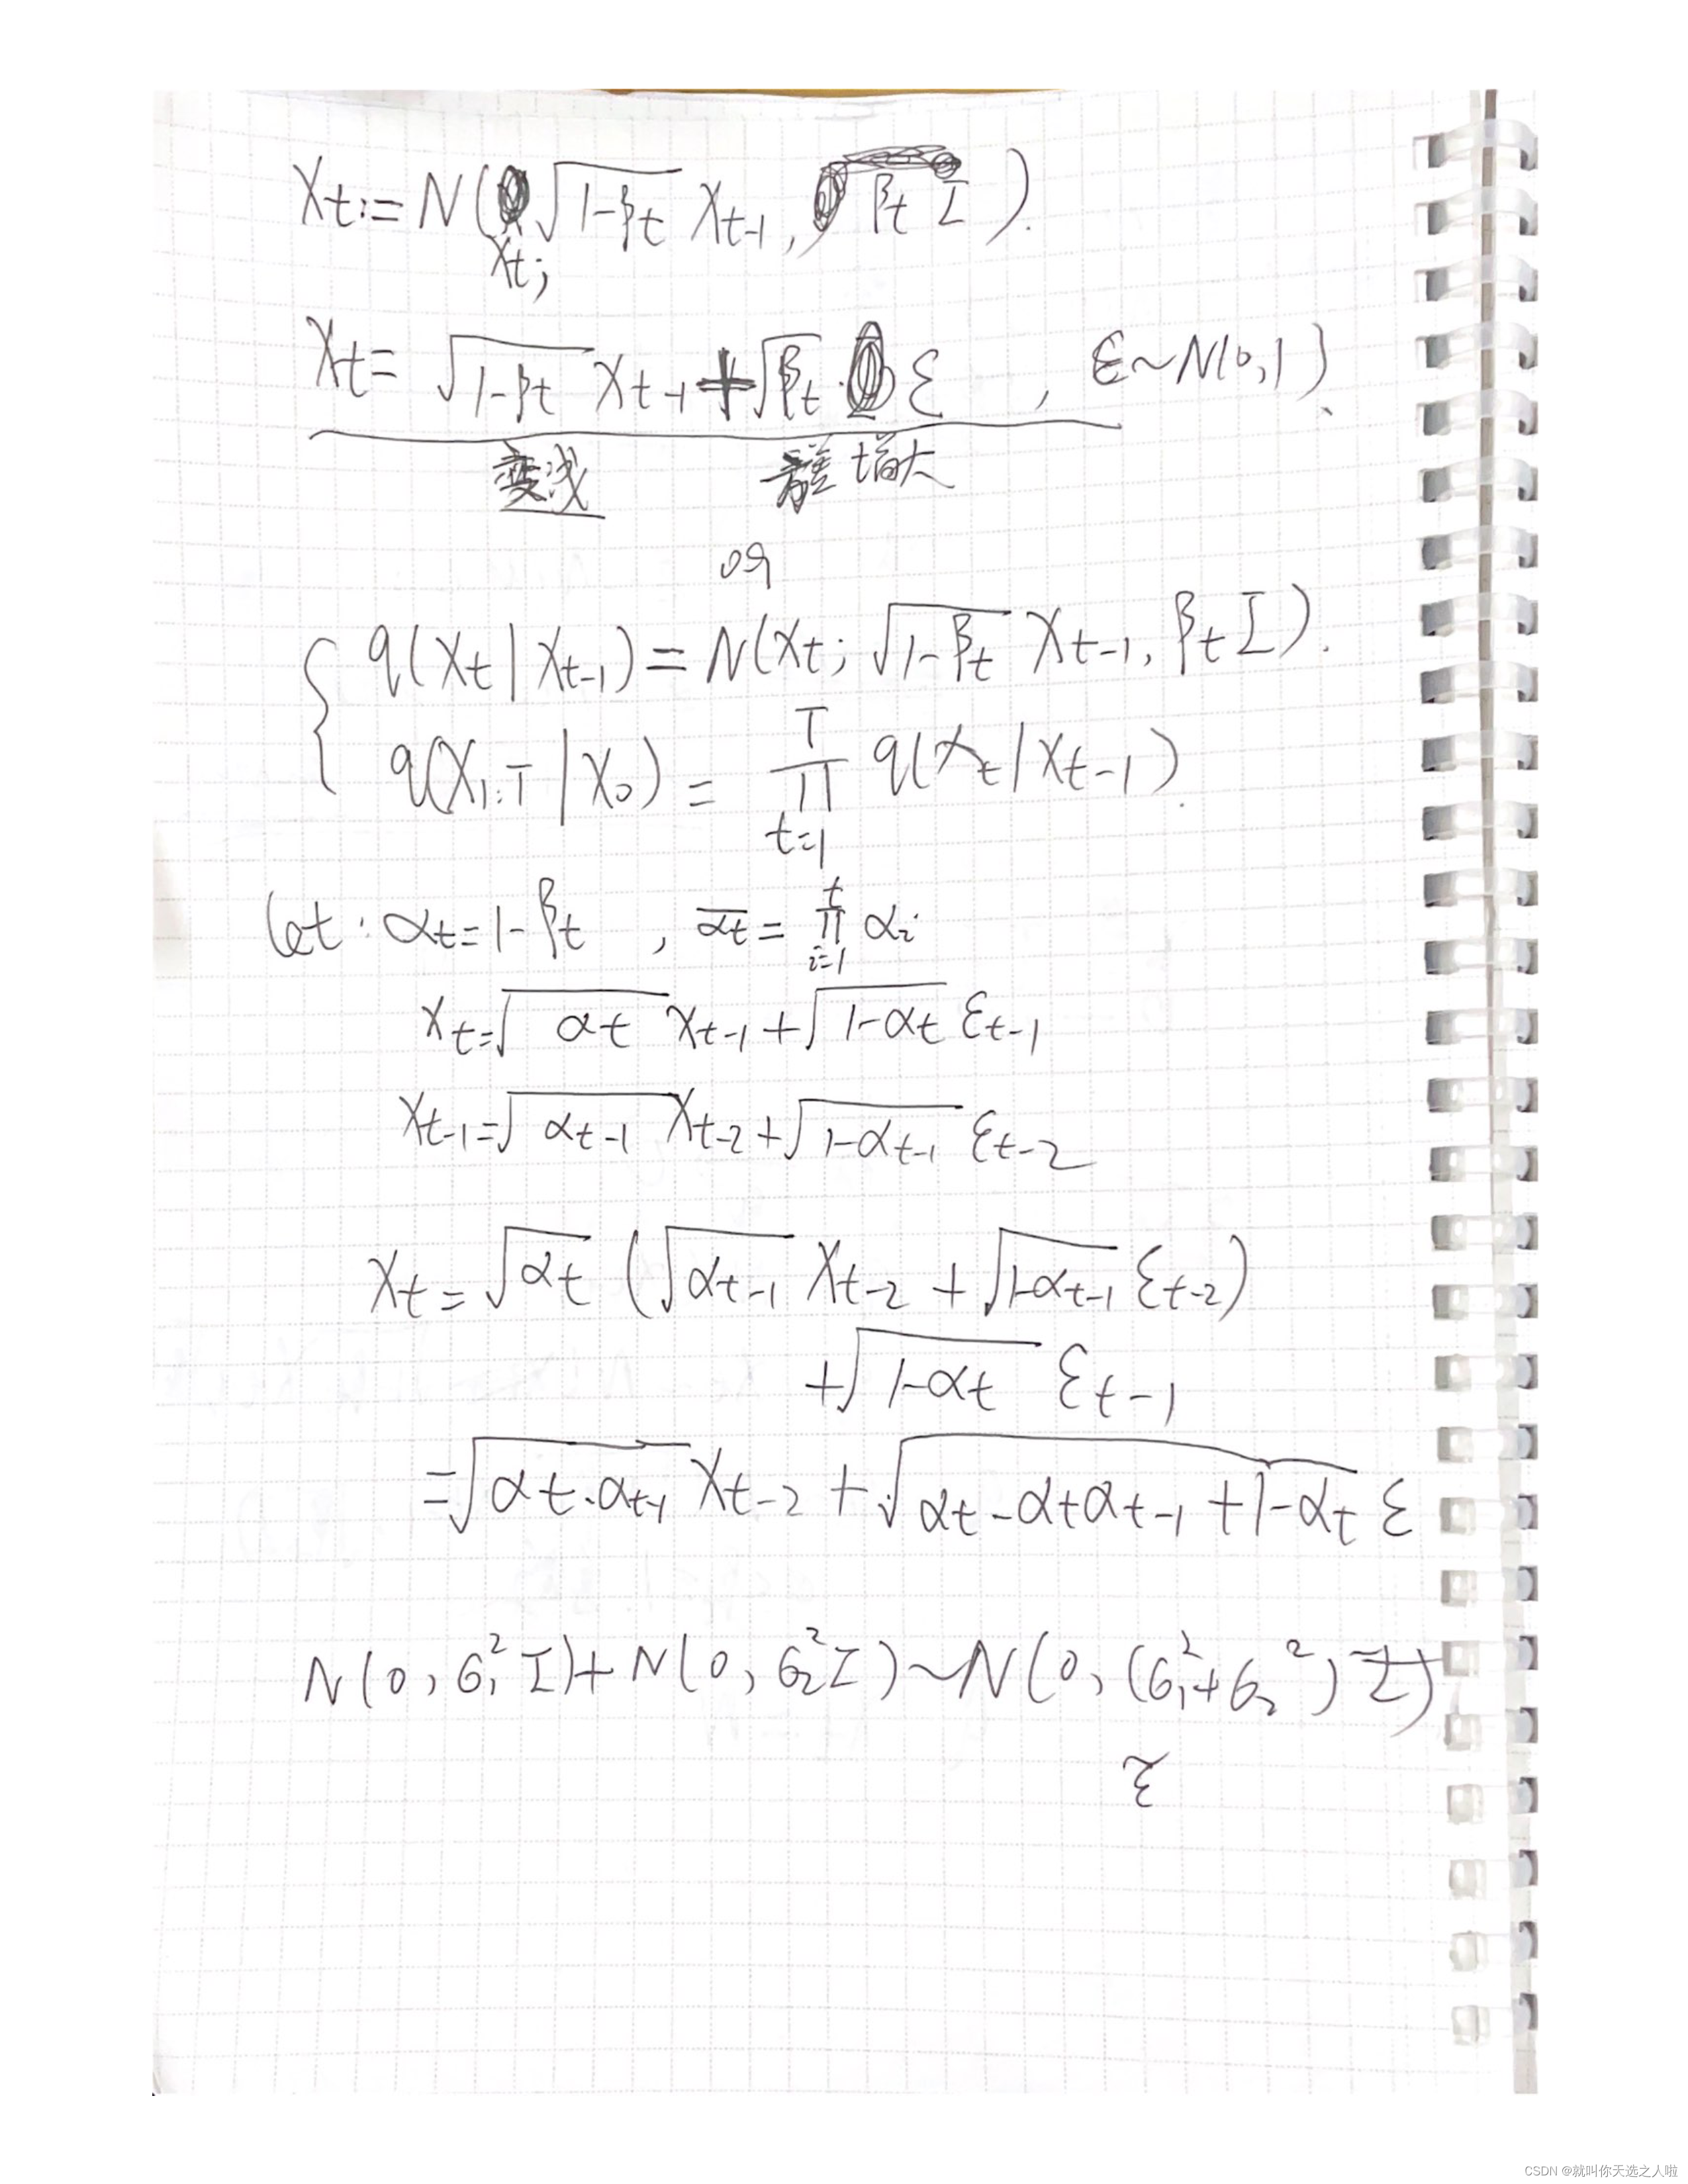 Xt := N(Xt; √(1-βt) Xt-1, βt I).
Xt = √(1-βt) Xt-1 + √βt · ε , ε~N(0,1)、
变浅 增大
or
q(Xt|Xt-1) = N(Xt; √(1-βt) Xt-1, βt I).
q(X1:T|X0) = ∏_{t=1}^{T} q(Xt|Xt-1).
let: αt = 1-βt , ᾱt = ∏_{i=1}^{t} αi
Xt = √αt Xt-1 + √(1-αt) εt-1
Xt-1 = √αt-1 Xt-2 + √(1-αt-1) εt-2
Xt = √αt (√αt-1 Xt-2 + √(1-αt-1) εt-2)
+ √(1-αt) εt-1
= √(αt·αt-1) Xt-2 + √(αt-αtαt-1+1-αt) ε
N(0, σ1² I) + N(0, σ2² I) ~ N(0, (σ1²+σ2²) I)
ε
CSDN @就叫你天选之人啦